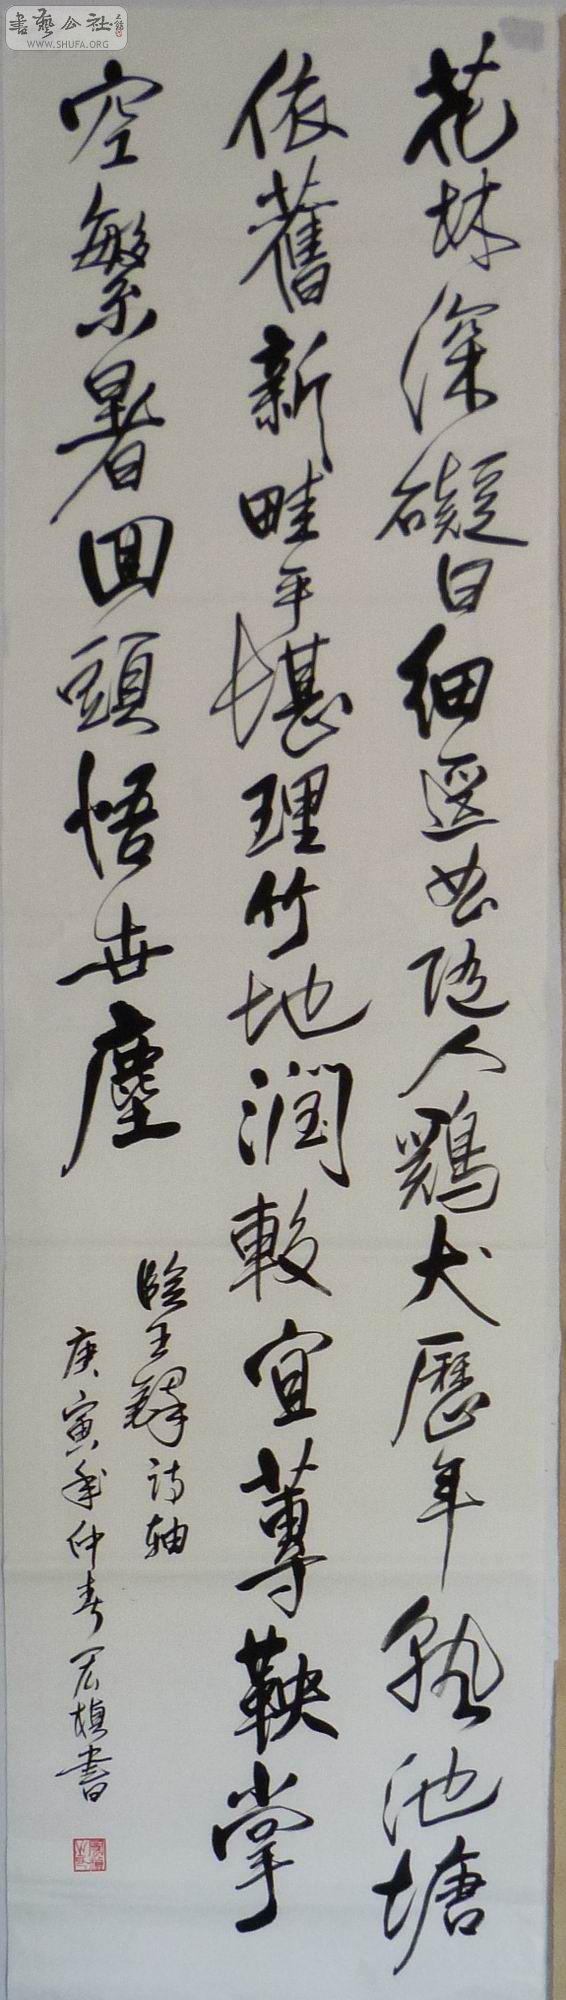 書藝公社
WWW.SHUFA.ORG
花林深礙日細逕每隨人鷄犬歷年熟池塘
依舊新畦平堪理竹地潤較宜蓴鞅掌
空繁暑回頭悟世塵
臨王鐸詩軸
庚寅年仲春宏書